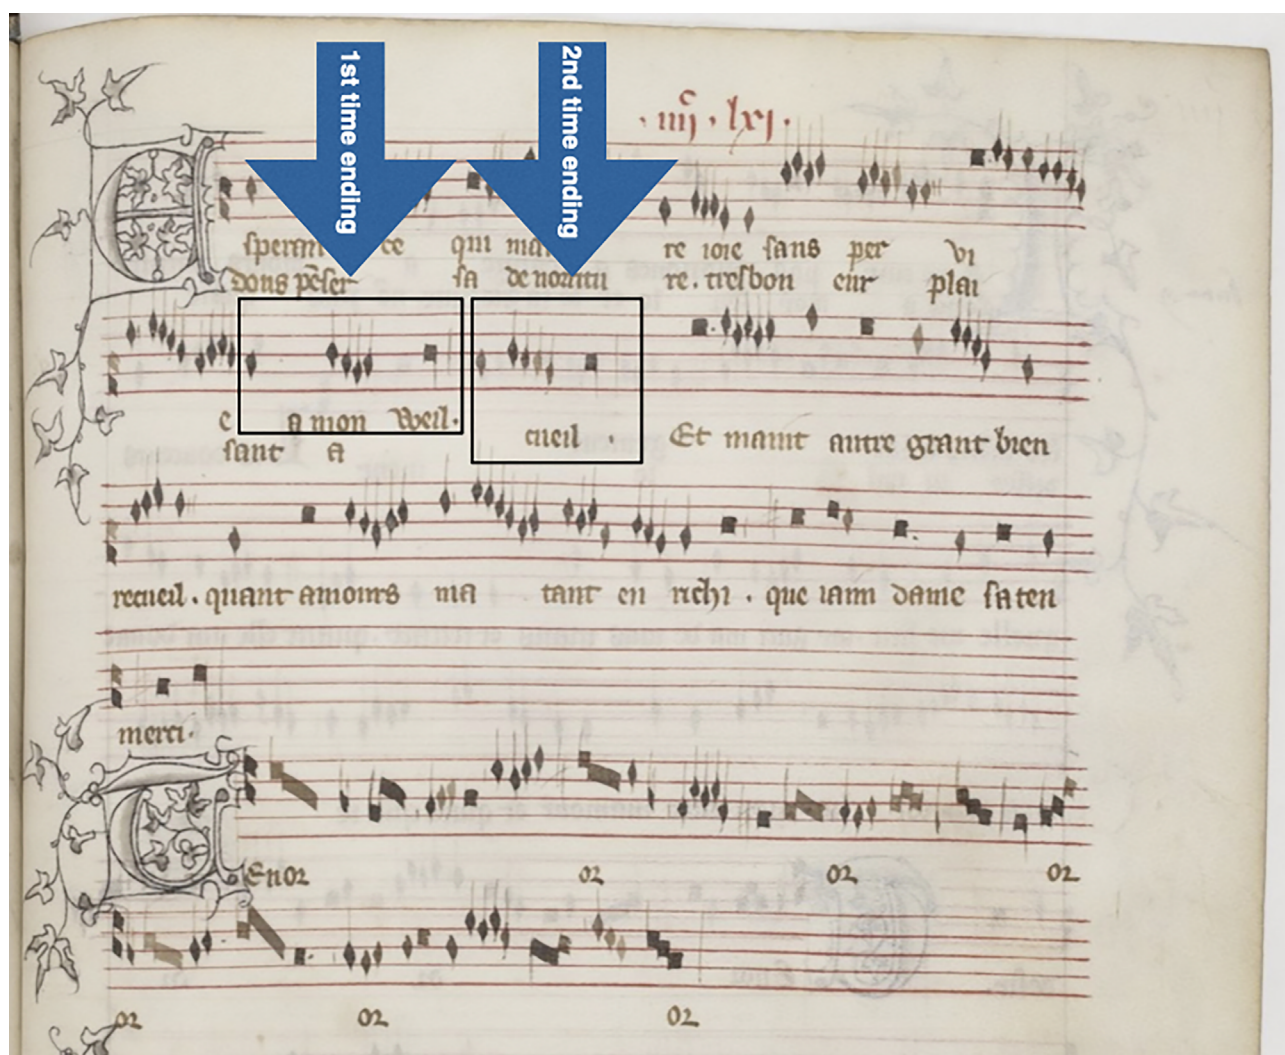 1st time ending
2nd time ending
iiij c lxj.
speran ce qui ma re ioie sans per vi
Dous pēser sa de norritu re. tresbon eur plai
e a mon Weil.
sant a cueil. Et maint autre grant bien
recueil. quant amours ma tant en richi. que iaim dame saten
merci.
Enor or or or
or or or